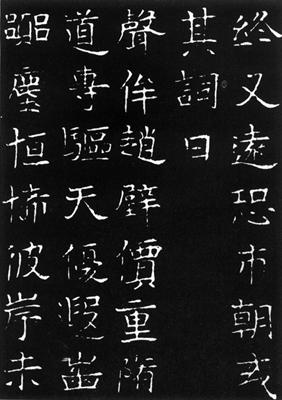 終又遠恐市朝或
其詞曰
聲侔趙璧價重隋
道專驅天優遐齒
塵恒波岸未